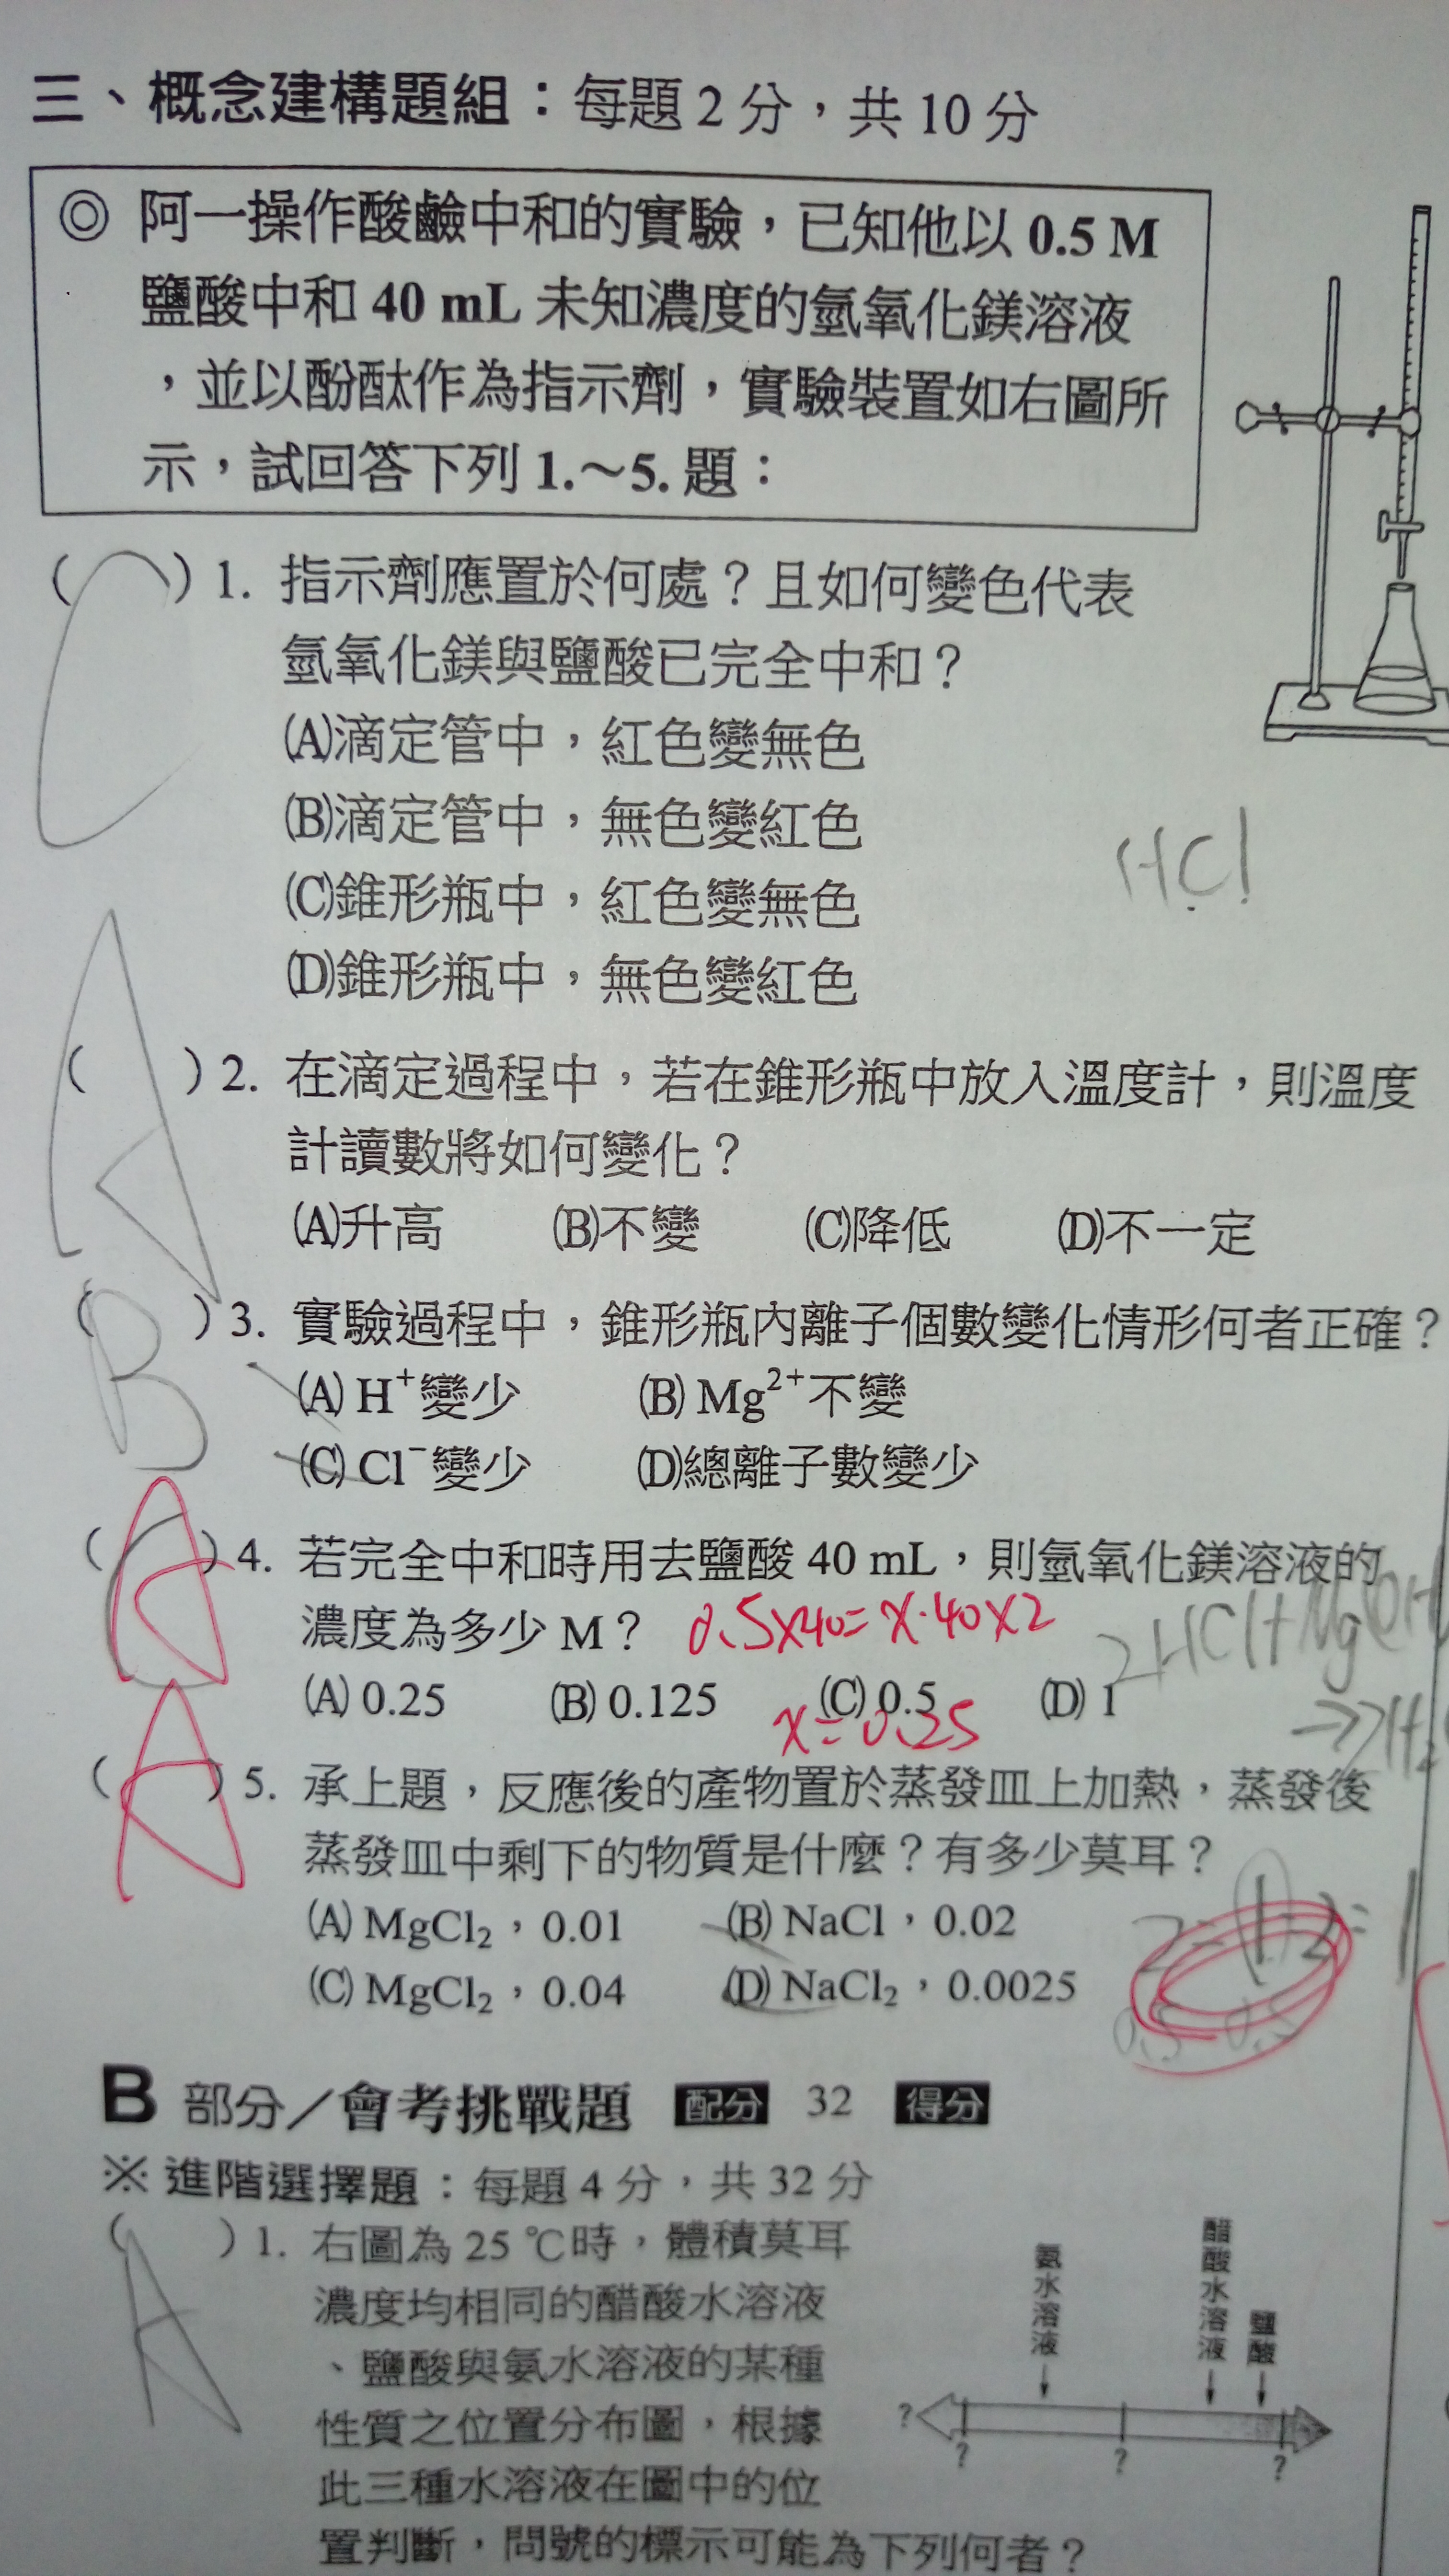 三、概念建構題組：每題 2 分，共 10 分
◎ 阿一操作酸鹼中和的實驗，已知他以 0.5 M
鹽酸中和 40 mL 未知濃度的氫氧化鎂溶液
，並以酚酞作為指示劑，實驗裝置如右圖所
示，試回答下列 1.～5. 題：
( C ) 1. 指示劑應置於何處？且如何變色代表
氫氧化鎂與鹽酸已完全中和？
(A)滴定管中，紅色變無色
(B)滴定管中，無色變紅色
HCl
(C)錐形瓶中，紅色變無色
(D)錐形瓶中，無色變紅色
( A ) 2. 在滴定過程中，若在錐形瓶中放入溫度計，則溫度
計讀數將如何變化？
(A)升高 (B)不變 (C)降低 (D)不一定
( B ) 3. 實驗過程中，錐形瓶內離子個數變化情形何者正確？
(A) H⁺變少 (B) Mg²⁺不變
(C) Cl⁻變少 (D)總離子數變少
( A ) 4. 若完全中和時用去鹽酸 40 mL，則氫氧化鎂溶液的
濃度為多少 M？ 0.5×40=x·40×2
2HCl+Mg(OH
(A) 0.25 (B) 0.125 (C) 0.5 (D) 1
x=0.25
( A ) 5. 承上題，反應後的產物置於蒸發皿上加熱，蒸發後
蒸發皿中剩下的物質是什麼？有多少莫耳？
(A) MgCl₂，0.01 (B) NaCl，0.02
(C) MgCl₂，0.04 (D) NaCl₂，0.0025
0.5 0.5
B 部分／會考挑戰題 配分 32 得分
※ 進階選擇題：每題 4 分，共 32 分
( A ) 1. 右圖為 25 ℃時，體積莫耳
濃度均相同的醋酸水溶液
、鹽酸與氨水溶液的某種
性質之位置分布圖，根據
此三種水溶液在圖中的位
置判斷，問號的標示可能為下列何者？
氨水溶液
醋酸水溶液
鹽酸
?
? ? ?